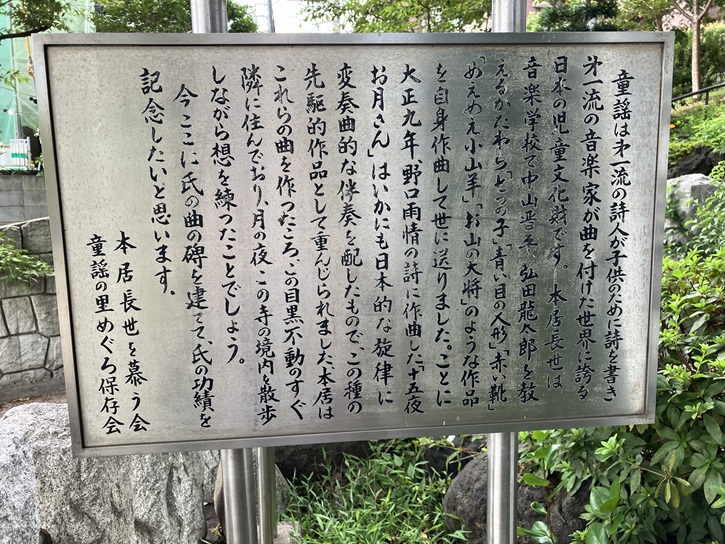 童謡は才一流の詩人が子供のために詩を書き
才一流の音楽家が曲を付けた世界に誇る
日本の児童文化財です。本居長世は
音楽学校で中山晋平、弘田龍太郎を教
えるかたわら「七つの子」「青い目の人形」「赤い靴」
「めえめえ小山羊」「お山の大将」のような作品
を自身作曲して世に送りました。ことに
大正九年、野口雨情の詩に作曲した「十五夜
お月さん」はいかにも日本的な旋律に
変奏曲的な伴奏を配したもので、この種の
先駆的作品として重んじられました。本居は
これらの曲を作ったころ、この目黒不動のすぐ
隣に住んでおり、月の夜この寺の境内を散歩
しながら想を練ったことでしょう。
今ここに氏の曲の碑を建て、氏の功績を
記念したいと思います。
本居長世を慕う会
童謡の里めぐろ保存会